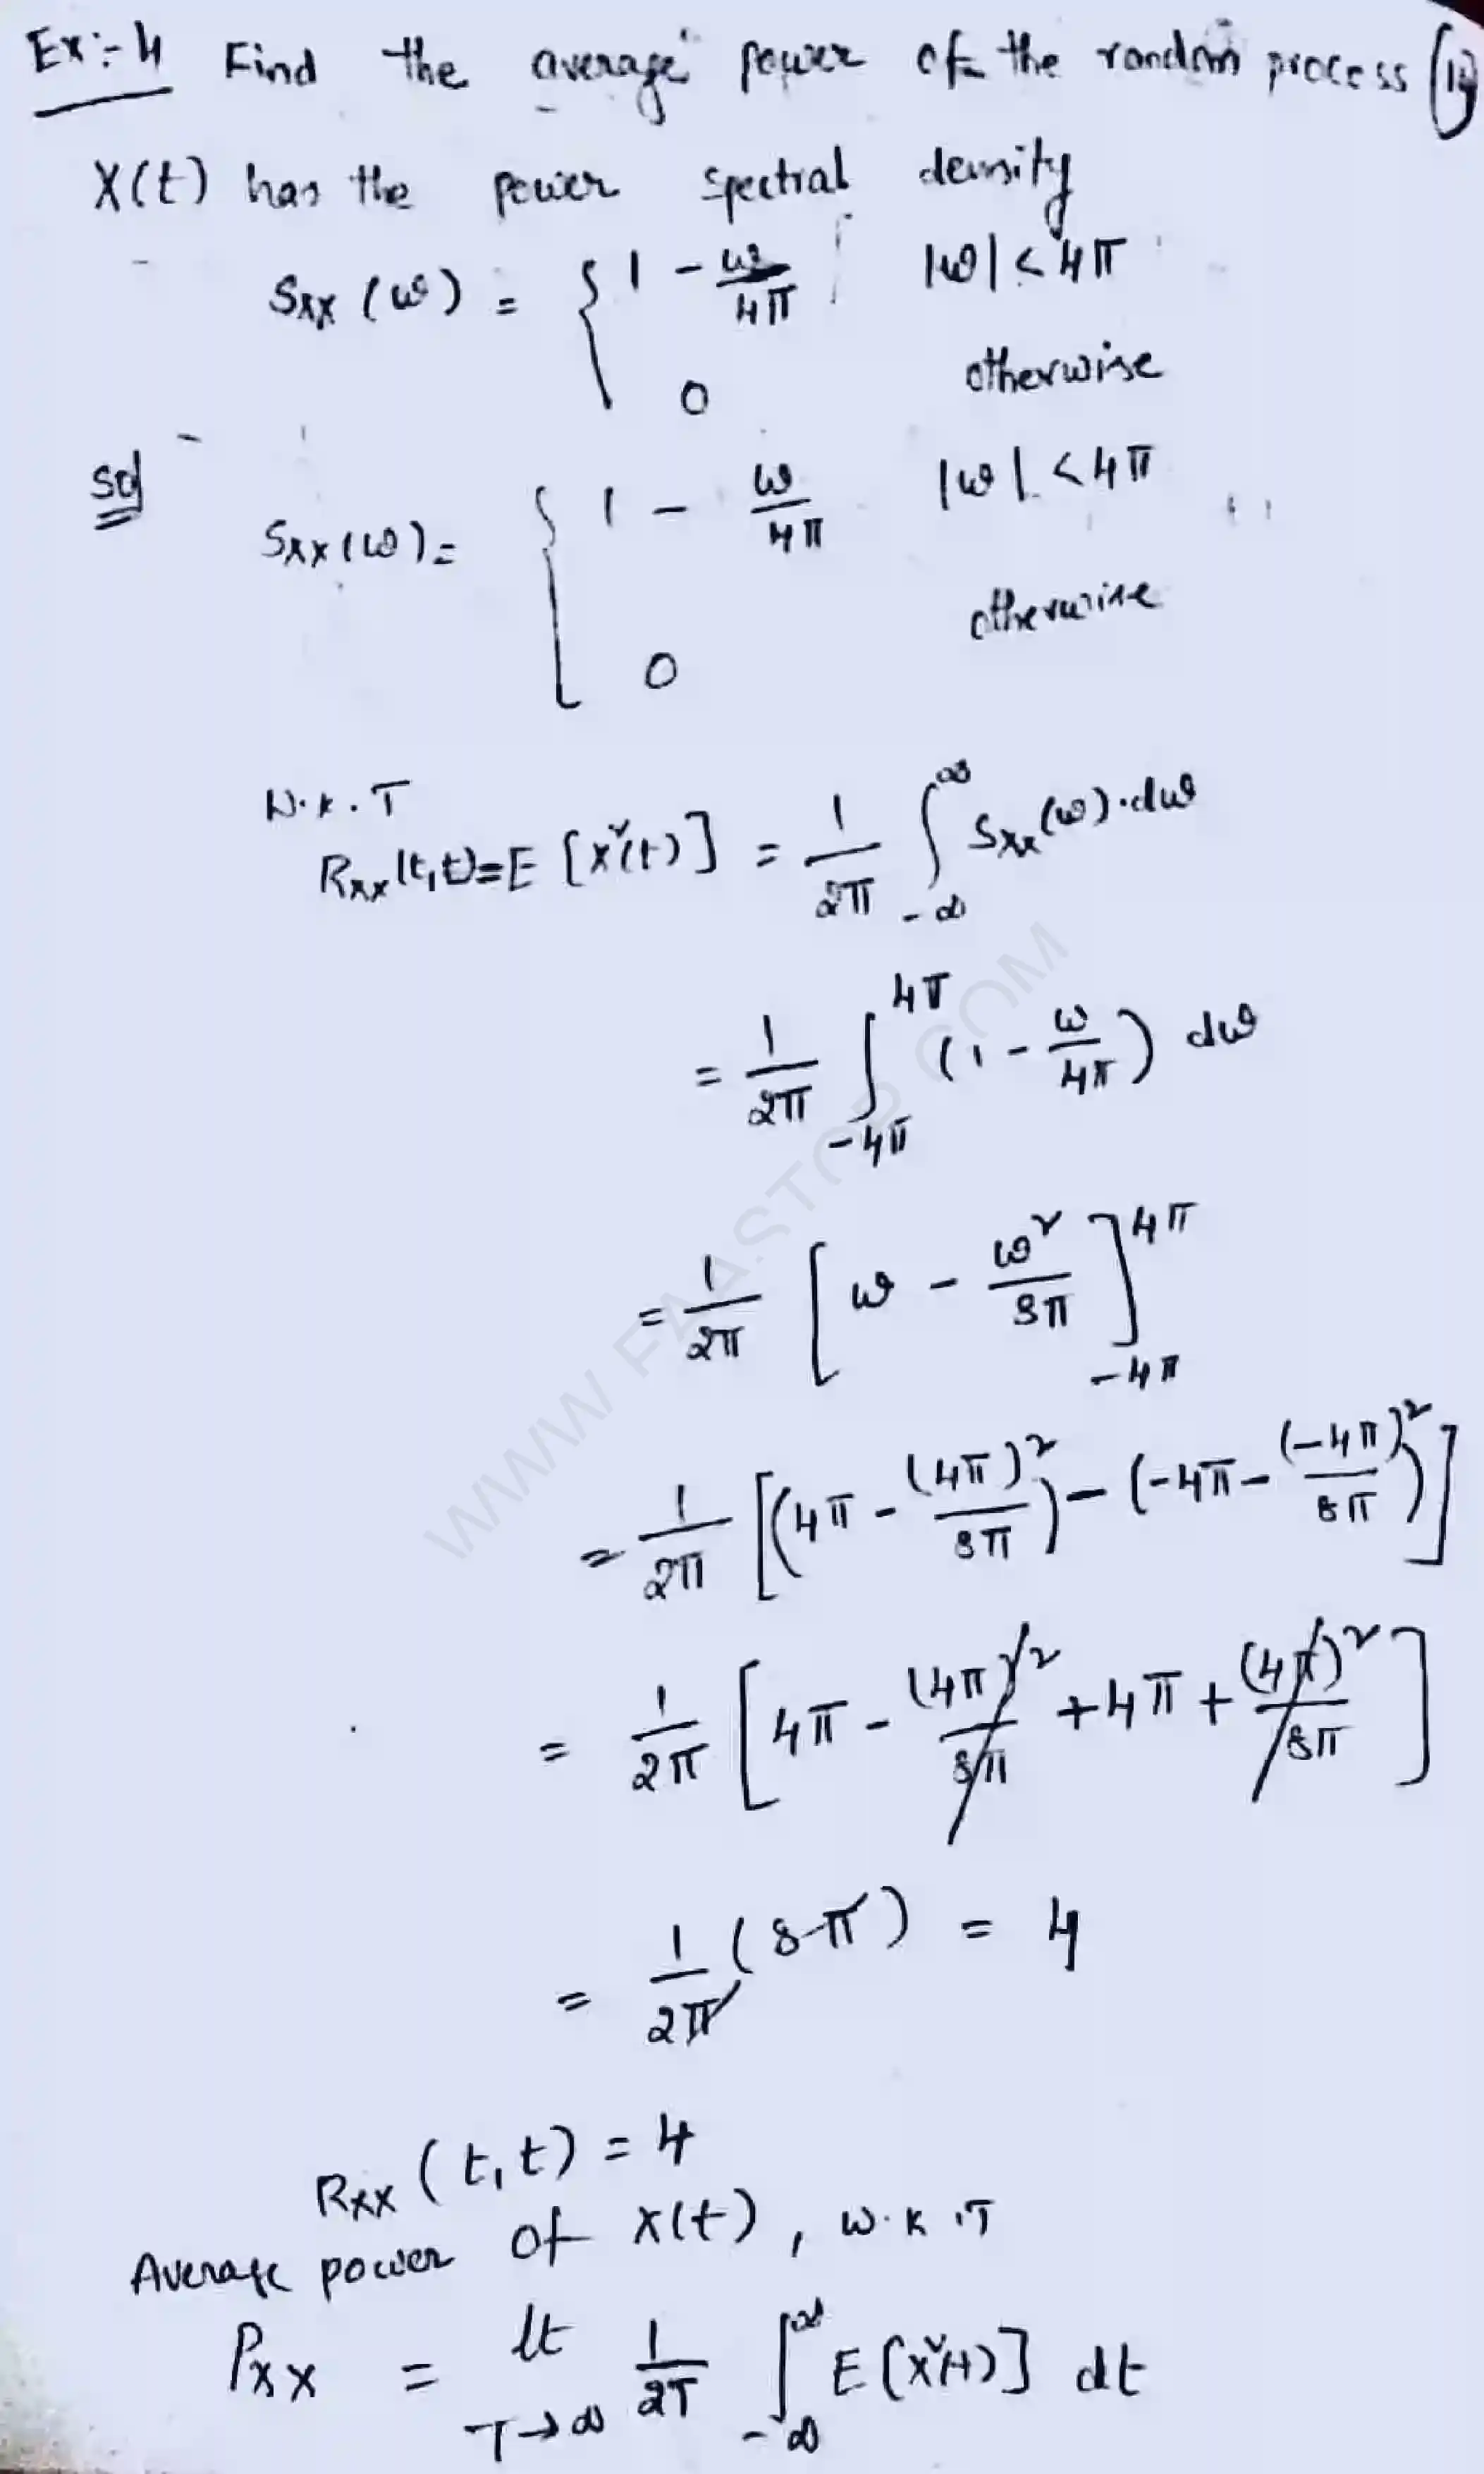 Ex:-4 Find the average power of the random process
X(t) has the power spectral density
Sxx(ω) = { 1 - ω/4π |ω| < 4π
0 otherwise
Sol
Sxx(ω) = { 1 - ω/4π |ω| < 4π
0 otherwise
W.K.T
Rxx(t,t) = E[X²(t)] = 1/2π ∫_{-∞}^{∞} Sxx(ω)·dω
= 1/2π ∫_{-4π}^{4π} (1 - ω/4π) dω
= 1/2π [ω - ω²/8π]_{-4π}^{4π}
= 1/2π [(4π - (4π)²/8π) - (-4π - (-4π)²/8π)]
= 1/2π [4π - (4π)²/8π + 4π + (4π)²/8π]
= 1/2π (8π) = 4
Rxx(t,t) = 4
Average power of X(t), W.K.T
Pxx = lt_{T→∞} 1/2T ∫_{-∞}^{∞} E[X²(t)] dt